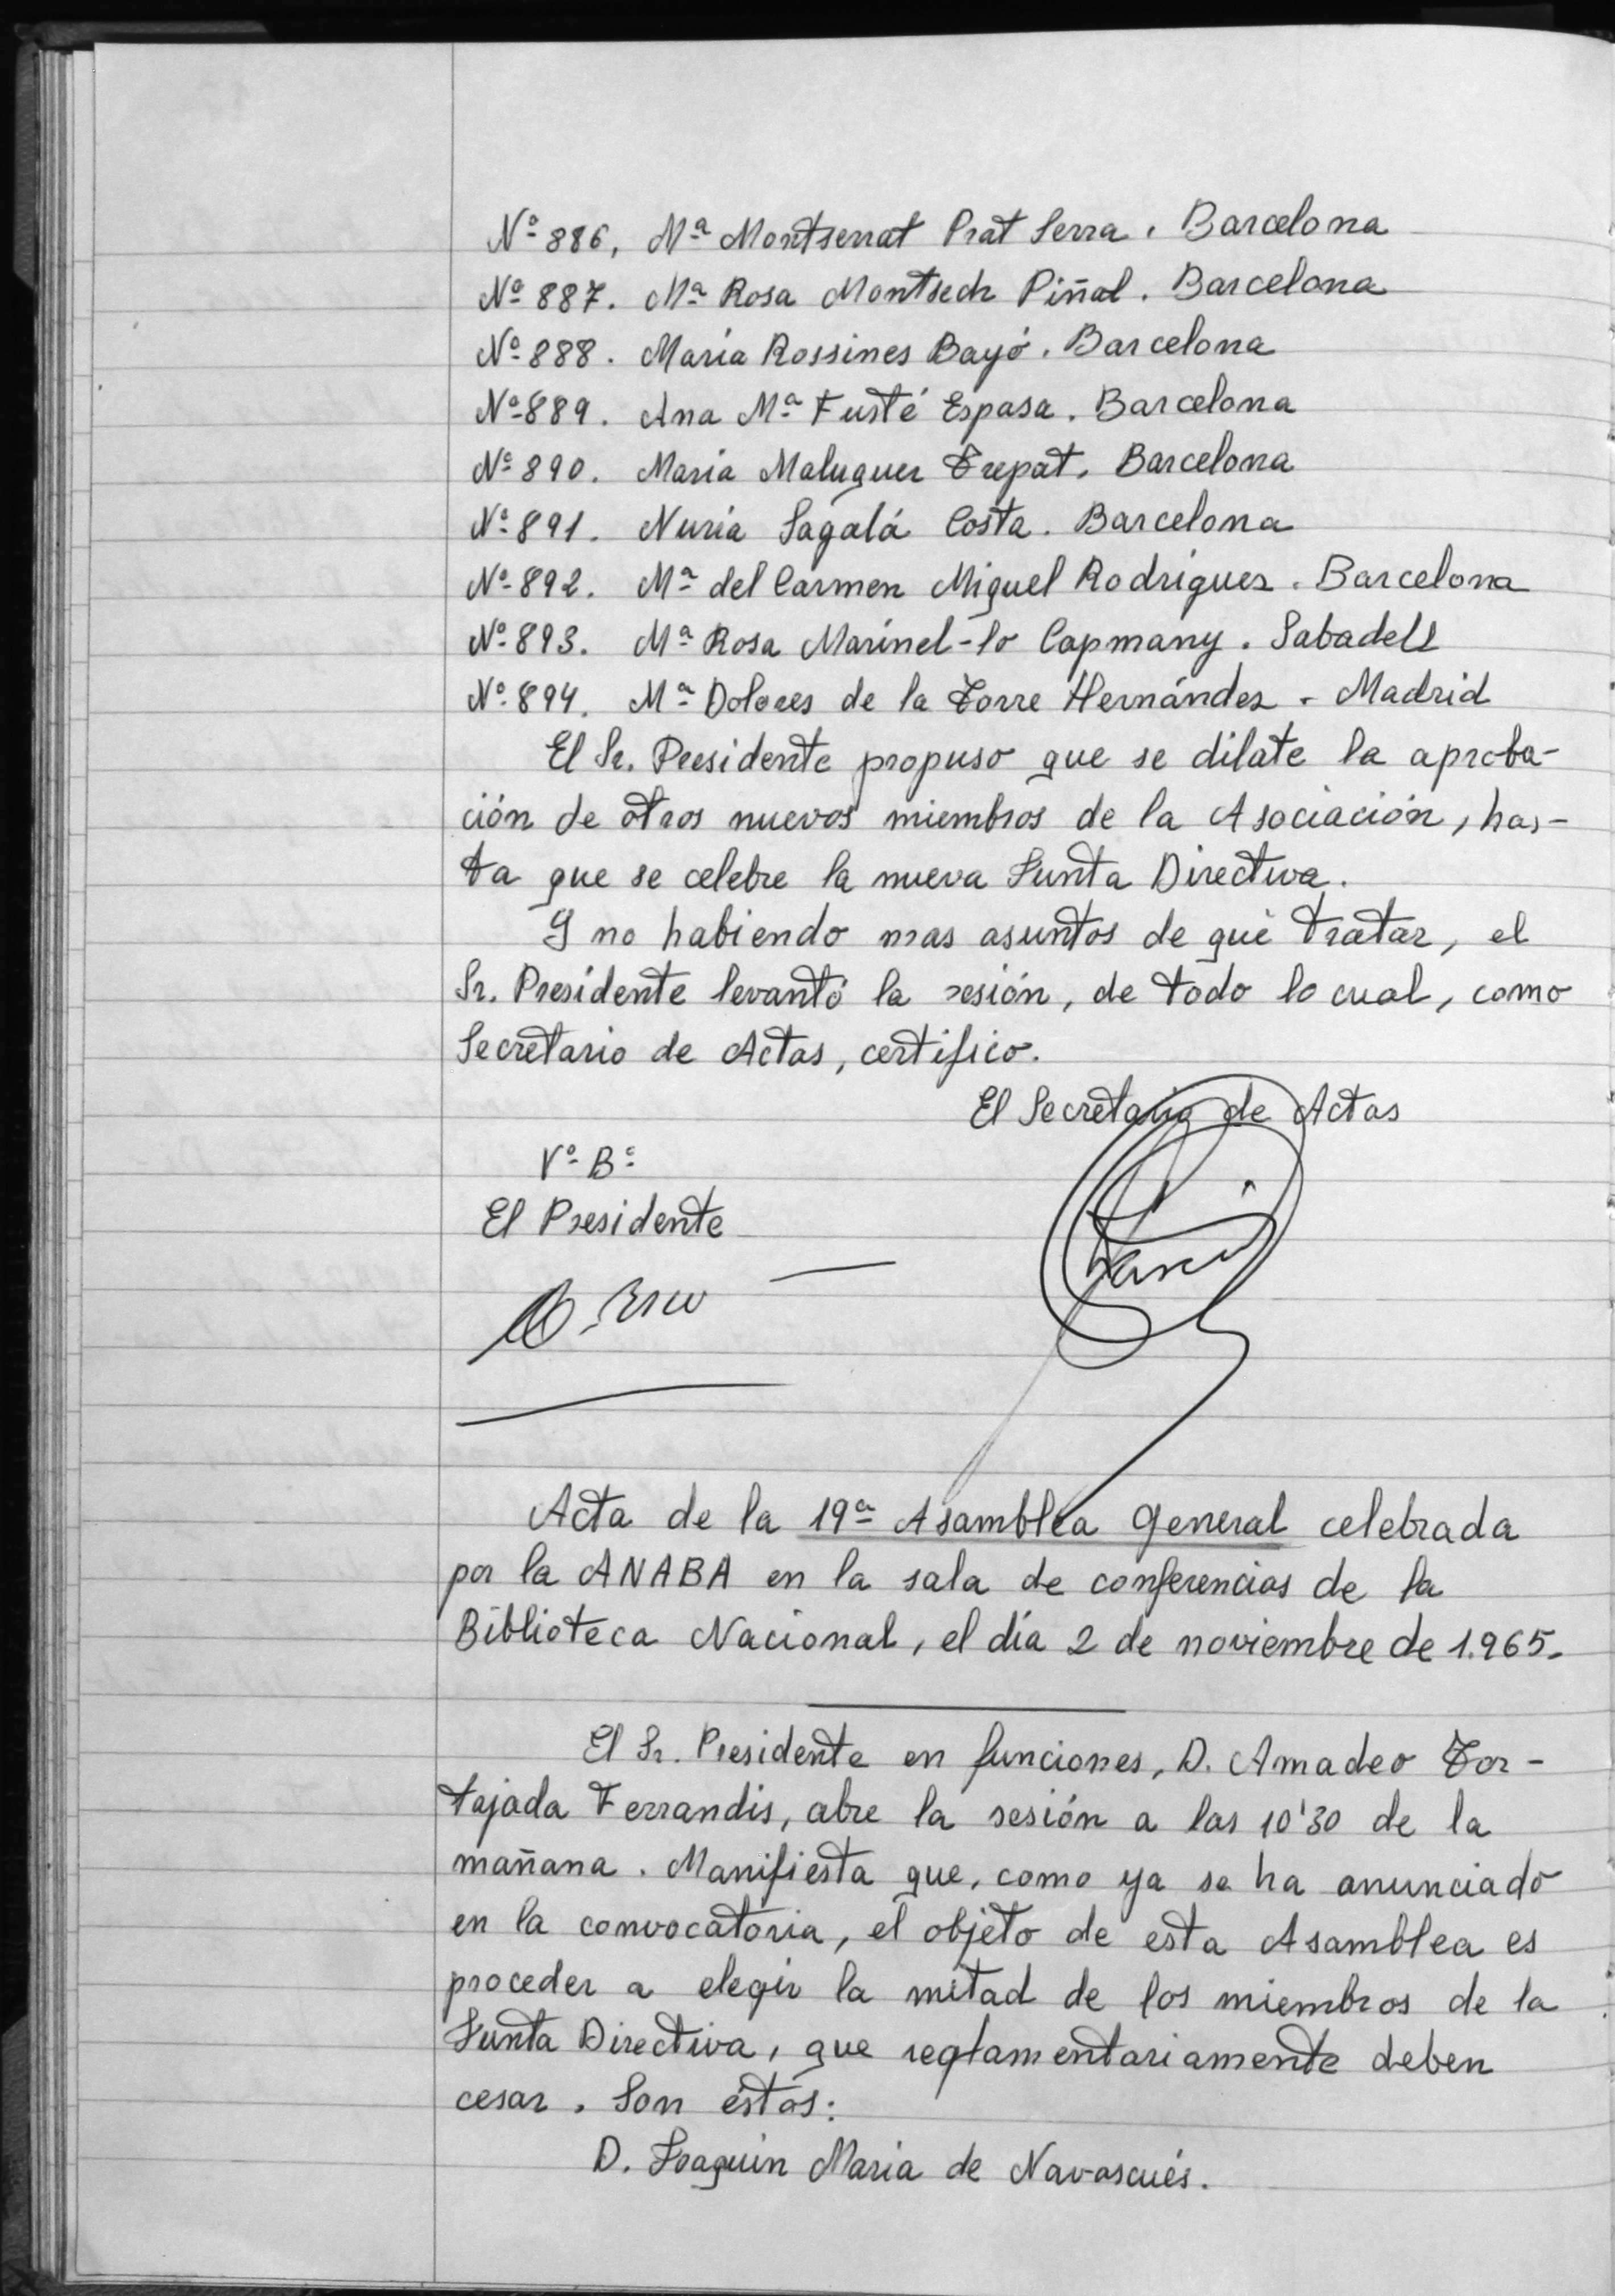 Nº 886, Mª Montserrat Prat Serra. Barcelona
Nº 887. Mª Rosa Montsech Piñol. Barcelona
Nº 888. María Rossines Bayó. Barcelona
Nº 889. Ana Mª Fusté Espasa. Barcelona
Nº 890. María Maluquer Trepat. Barcelona
Nº 891. Nuria Sagalá Costa. Barcelona
Nº 892. Mª del Carmen Miguel Rodríguez. Barcelona
Nº 893. Mª Rosa Marinel-lo Capmany. Sabadell
Nº 894. Mª Dolores de la Torre Hernández - Madrid
El Sr. Presidente propuso que se dilate la aproba-
ción de otros nuevos miembros de la Asociación, has-
ta que se celebre la nueva Junta Directiva.
Y no habiendo mas asuntos de qué tratar, el
Sr. Presidente levantó la sesión, de todo lo cual, como
Secretario de Actas, certifico.
El Secretario de Actas
Vº Bº
El Presidente
Acta de la 19ª Asamblea General celebrada
por la ANABA en la sala de conferencias de la
Biblioteca Nacional, el día 2 de noviembre de 1.965.
El Sr. Presidente en funciones, D. Amadeo Tor-
tajada Ferrandis, abre la sesión a las 10'30 de la
mañana. Manifiesta que, como ya se ha anunciado
en la convocatoria, el objeto de esta Asamblea es
proceder a elegir la mitad de los miembros de la
Junta Directiva, que reglamentariamente deben
cesar. Son éstos:
D. Joaquín María de Navascués.